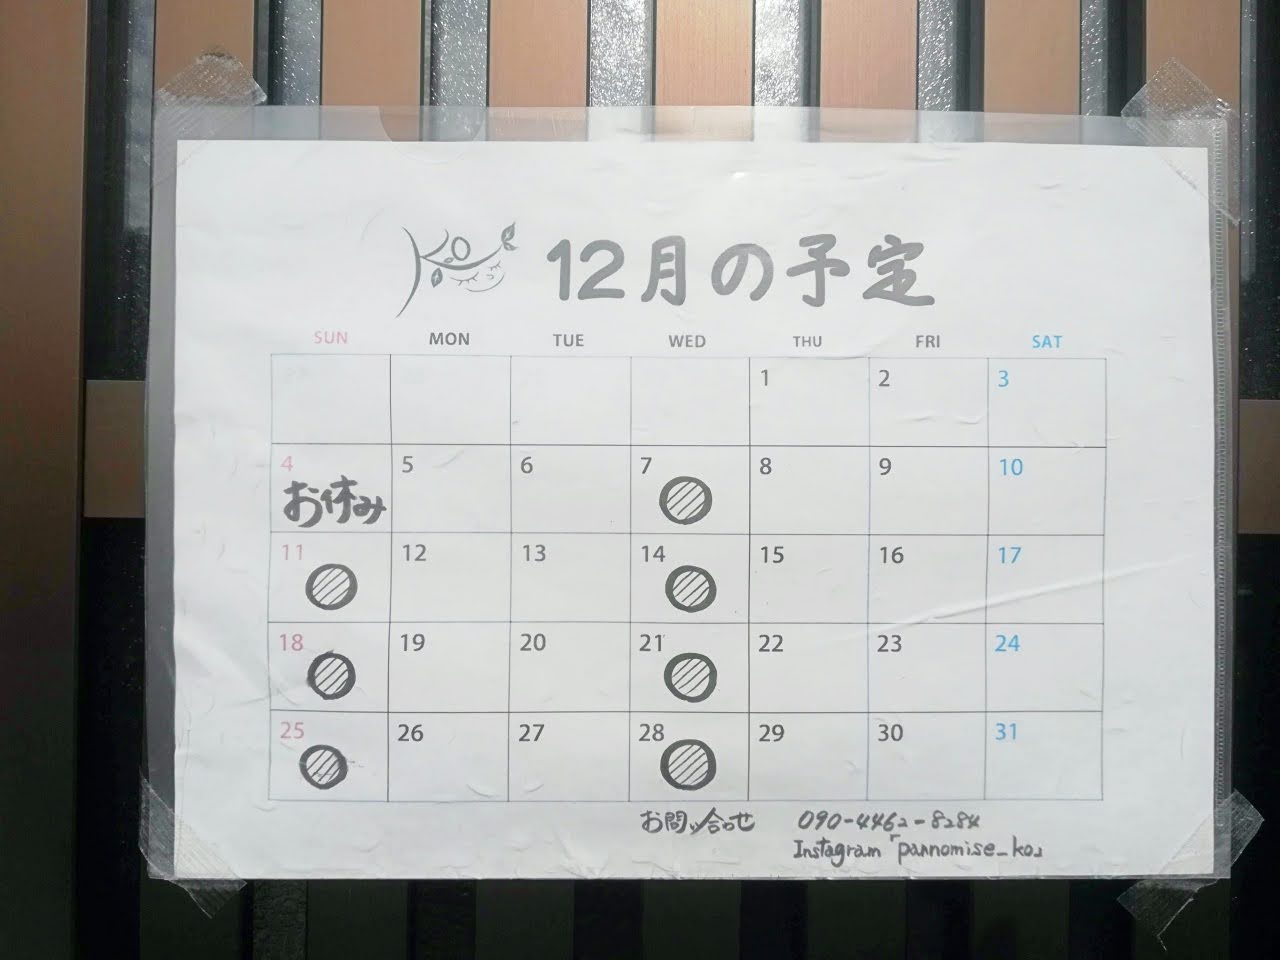 Ko 12月の予定
SUN MON TUE WED THU FRI SAT
1 2 3
4 5 6 7 8 9 10
お休み
11 12 13 14 15 16 17
18 19 20 21 22 23 24
25 26 27 28 29 30 31
お問い合わせ 090-4462-8284
Instagram「pannomise_ko」